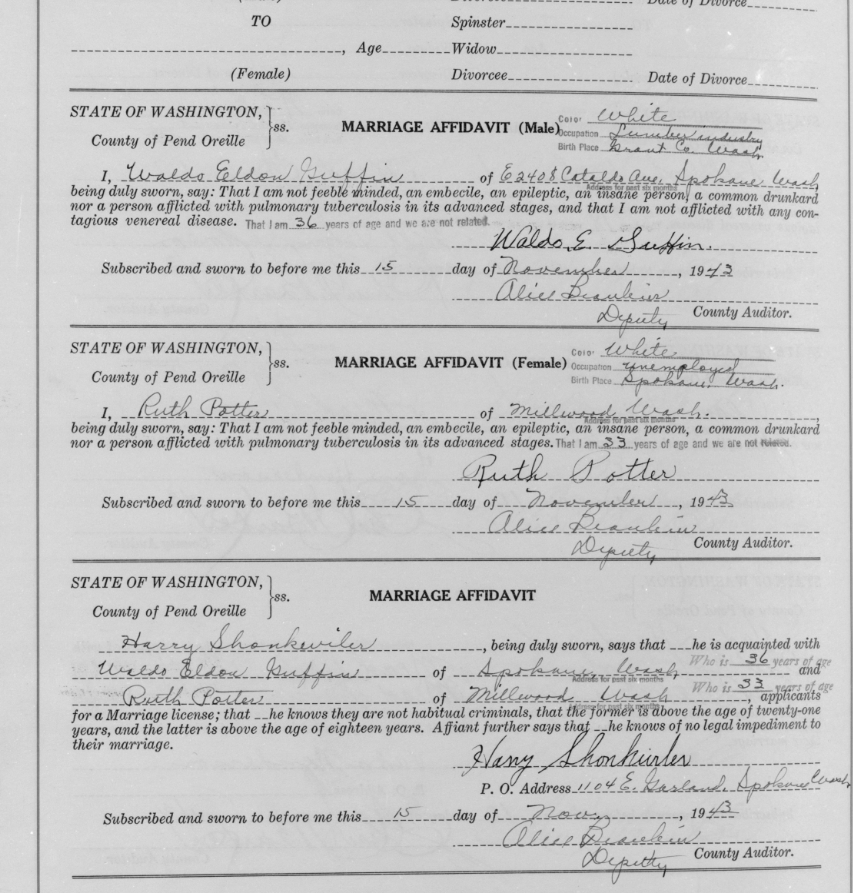 Date of Divorce
TO Spinster
, Age Widow
(Female) Divorcee Date of Divorce
STATE OF WASHINGTON,
County of Pend Oreille
ss.
MARRIAGE AFFIDAVIT (Male)
Color White
Occupation Lumber industry
Birth Place Grant Co. Wash.
I, Waldo Eldon Guffin of E2408 Cataldo Ave, Spokane Wash,
Address for past six months
being duly sworn, say: That I am not feeble minded, an embecile, an epileptic, an insane person, a common drunkard
nor a person afflicted with pulmonary tuberculosis in its advanced stages, and that I am not afflicted with any con-
tagious venereal disease. That I am 36 years of age and we are not related.
Waldo E Guffin.
Subscribed and sworn to before me this 15 day of November, 1943
Alice
Deputy County Auditor.
STATE OF WASHINGTON,
County of Pend Oreille
ss.
MARRIAGE AFFIDAVIT (Female)
Color White
Occupation unemployed
Birth Place Spokane, Wash.
I, Ruth Potter of Millwood Wash.
Address for past six months
being duly sworn, say: That I am not feeble minded, an embecile, an epileptic, an insane person, a common drunkard
nor a person afflicted with pulmonary tuberculosis in its advanced stages. That I am 33 years of age and we are not related.
Ruth Potter
Subscribed and sworn to before me this 15 day of November, 1943
Alice
Deputy County Auditor.
STATE OF WASHINGTON,
County of Pend Oreille
ss.
MARRIAGE AFFIDAVIT
Harry Shonkwiler, being duly sworn, says that he is acquainted with
Waldo Eldon Guffin of Spokane, Wash, Who is 36 years of age and
Address for past six months
Ruth Potter of Millwood Wash Who is 33 years of age, applicants
Address for past six months
for a Marriage license; that he knows they are not habitual criminals, that the former is above the age of twenty-one
years, and the latter is above the age of eighteen years. Affiant further says that he knows of no legal impediment to
their marriage.
Harry Shonkwiler
P. O. Address 1104 E. Garland, Spokane Wash,
Subscribed and sworn to before me this 15 day of Nov, 1943
Alice
Deputy County Auditor.